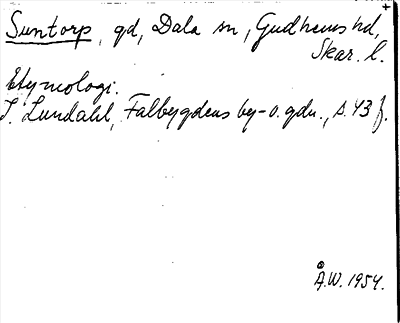 Suntorp, gd, Dala sn, Gudhems hd,
Skar. l.
Etymologi.
I. Lundahl, Falbygdens by-o. gdn., s. 43 f.
Å.W. 1954.